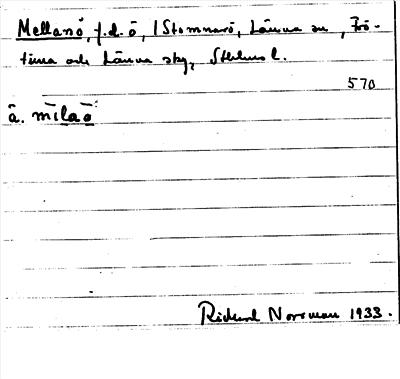 Mellanö, f.d. ö, i Stomnarö, Länna sn, Frö-
tuna och Länna skg, Sthlms l.
570
å. mı̄laö̀
Rickard Norrman 1933.